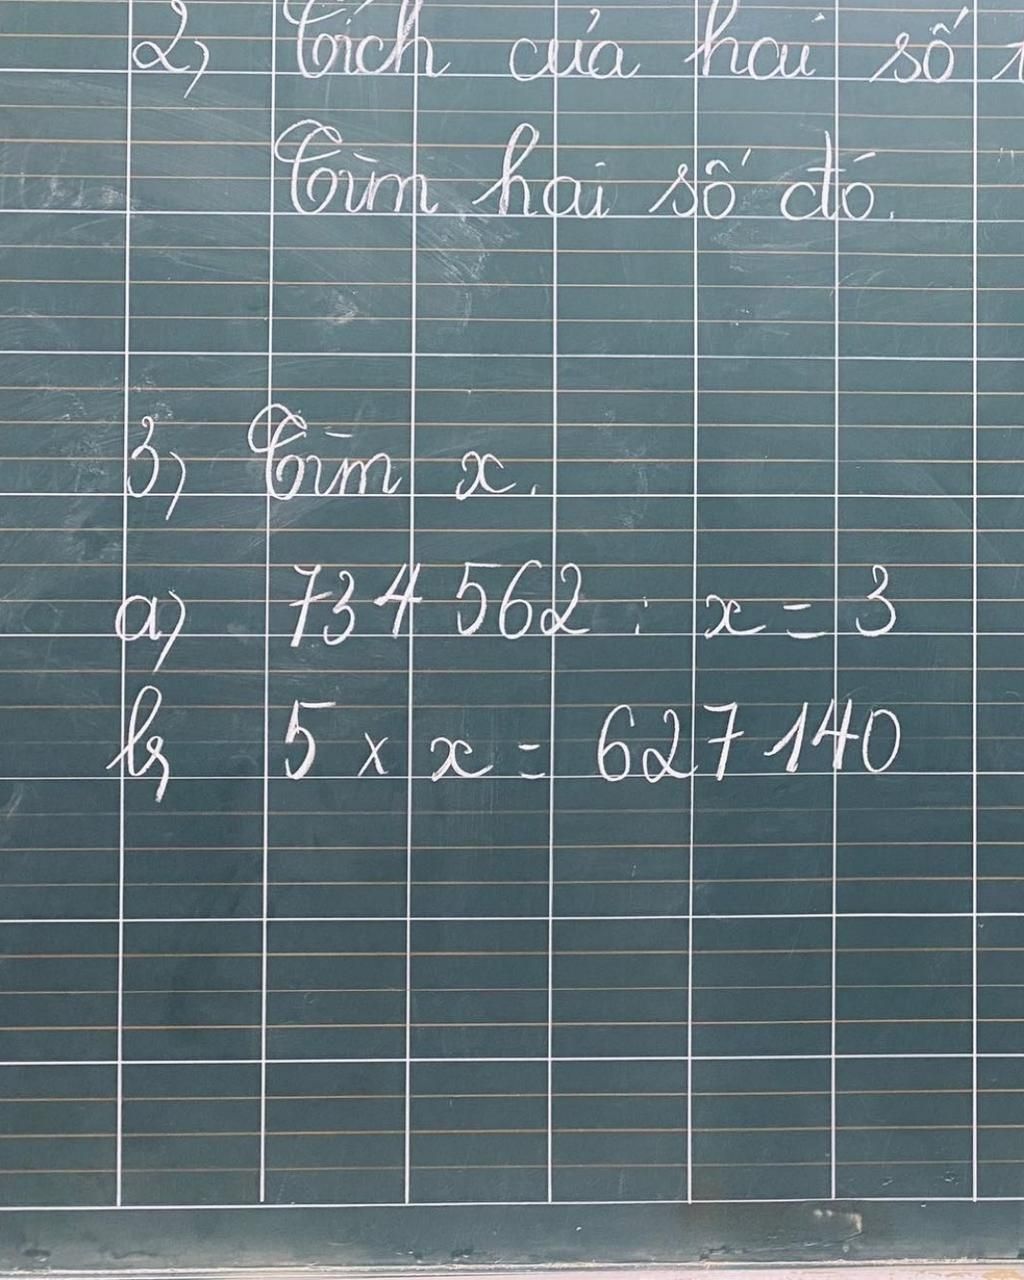 2) Tích của hai số
Tìm hai số đó.
3) Tìm x.
a) 734 562 : x = 3
b) 5 × x = 627 140